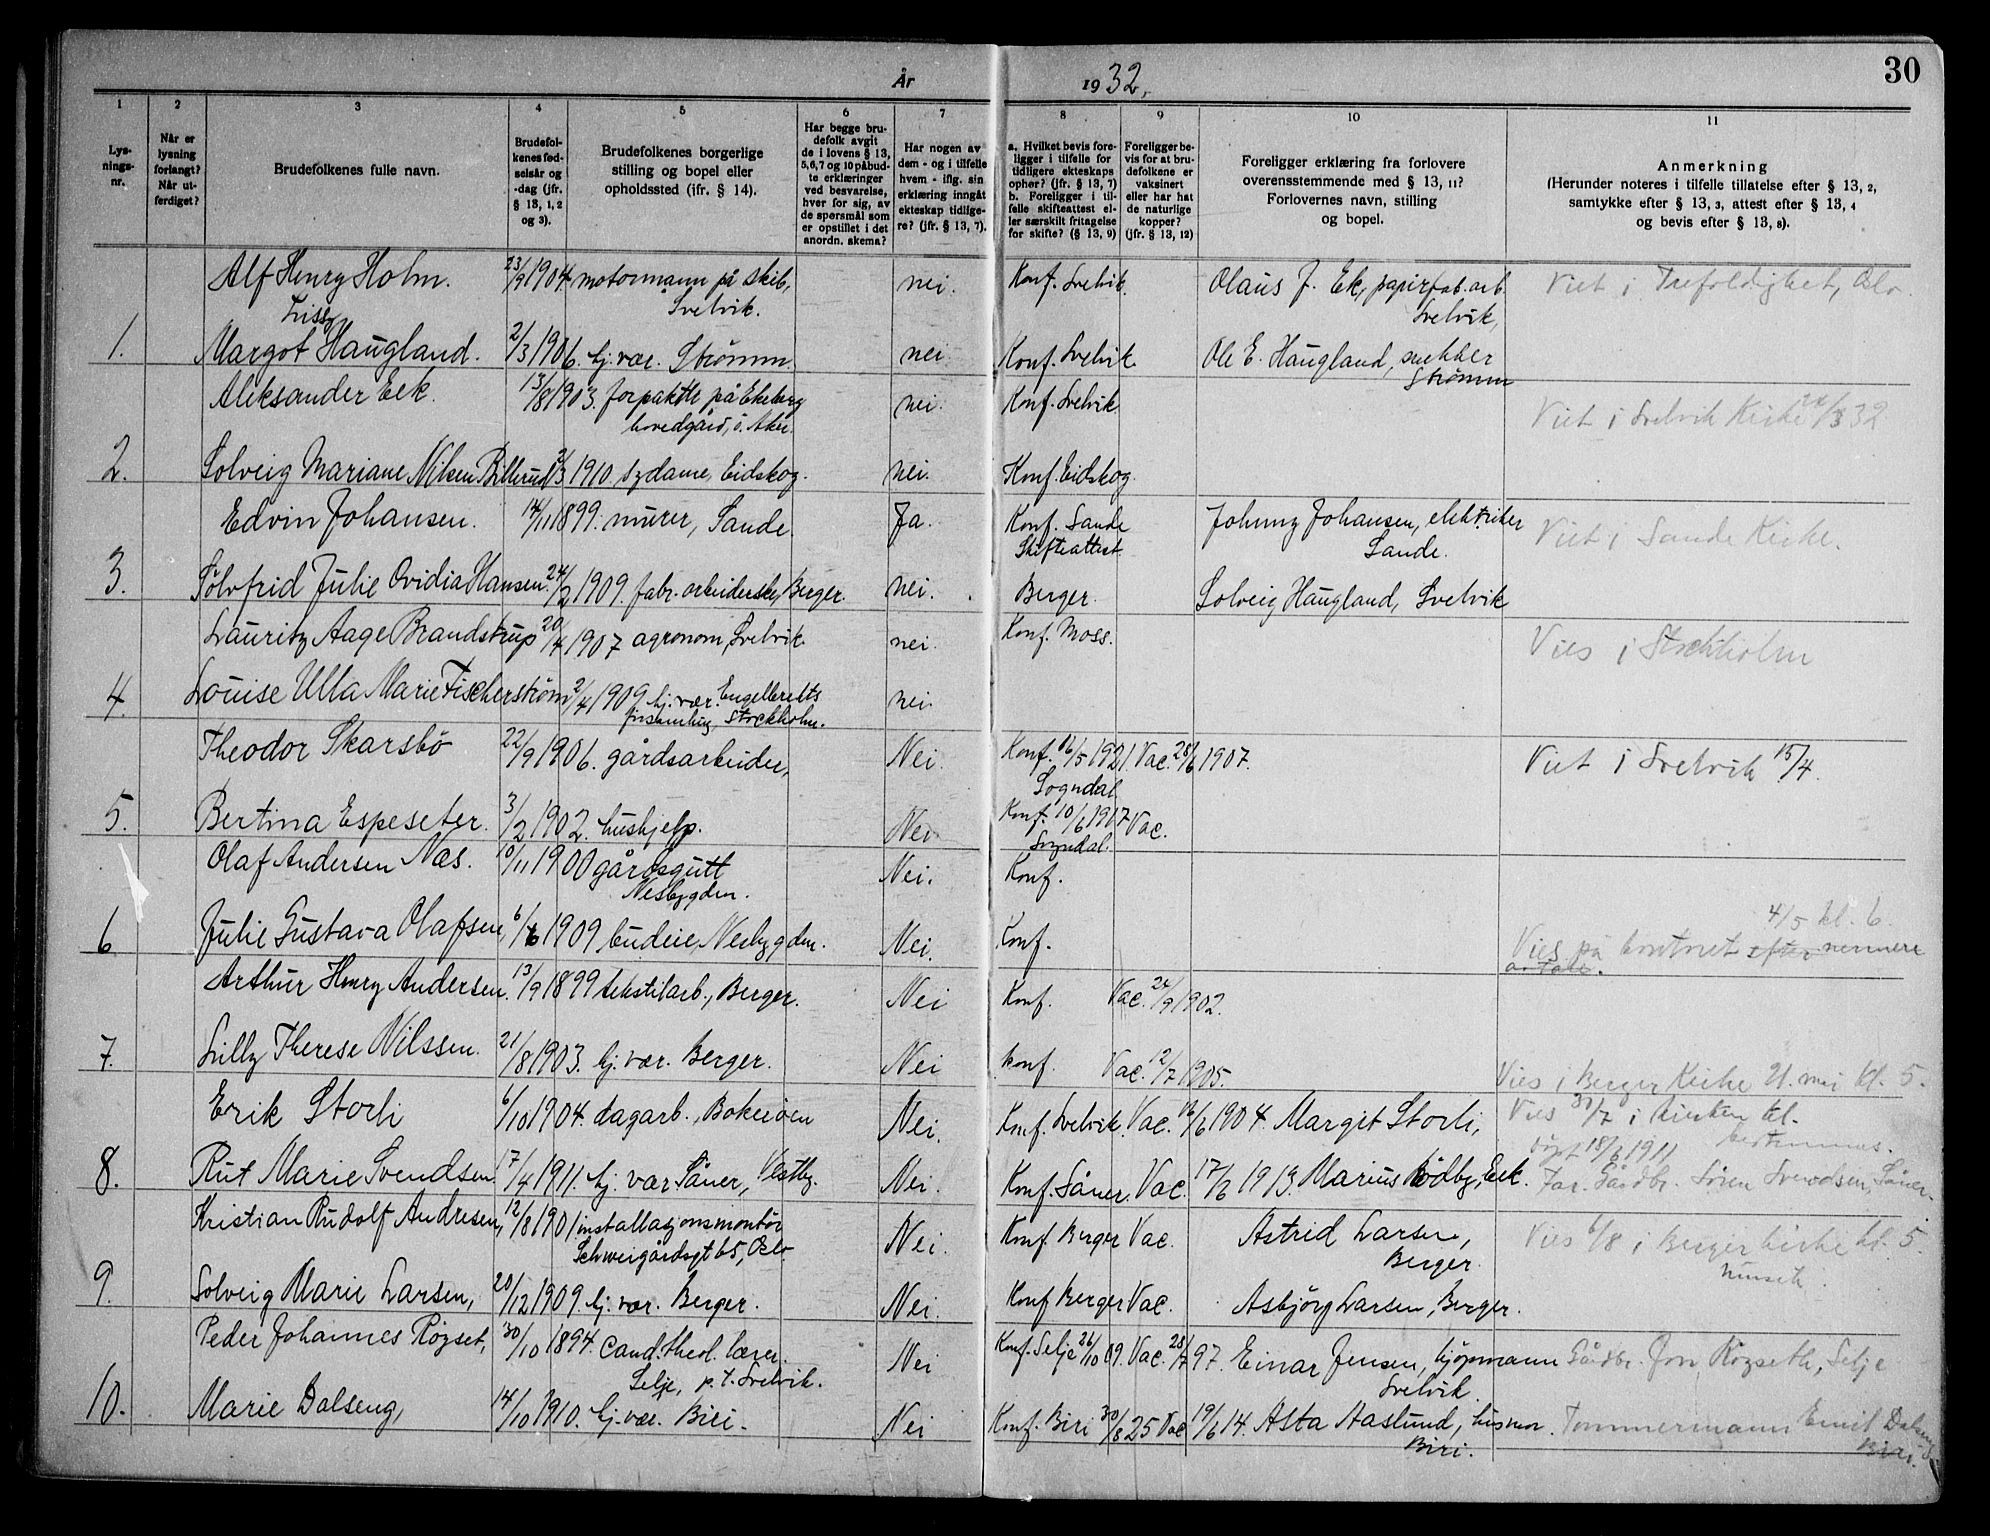 30
År 1932.
1 2 3 4 5 6 7 8 9 10 11
Lysningsnr.
Når er lysning forlangt? Når utferdiget?
Brudefolkenes fulle navn.
Brudefolkenes fødselsår og -dag (jfr. § 13, 1, 2 og 3).
Brudefolkenes borgerlige stilling og bopel eller opholdssted (ifr. § 14).
Har begge brudefolk avgit de i lovens § 13, 5,6,7 og 10 påbudte erklæringer ved besvarelse, hver for sig, av de spørsmål som er opstillet i det anordn. skema?
Har nogen av dem - og i tilfelle hvem - iflg. sin erklæring inngåt ekteskap tidligere? (jfr. § 13, 7).
a. Hvilket bevis foreligger i tilfelle for tidligere ekteskaps ophør? (jfr. § 13, 7) b. Foreligger i tilfelle skifteattest eller særskilt fritagelse for skifte? (§ 13, 9)
Foreligger bevis for at brudefolkene er vaksinert eller har hat de naturlige kopper? (jfr. § 13, 12)
Foreligger erklæring fra forlovere overensstemmende med § 13, 11? Forlovernes navn, stilling og bopel.
Anmerkning (Herunder noteres i tilfelle tillatelse efter § 13, 2, samtykke efter § 13, 3, attest efter § 13, 4 og bevis efter § 13, 8).
Alf Henry Holm. 23/9 1904 motormann på skib, Svelvik. nei. Konf. Svelvik. Olaus J. Ek, papirfab.arb. Svelvik, Viet i Trefoldighet, Oslo.
1. Margot Lissy Haugland. 2/3 1906. hj. vær. Strømm. nei Konf. Svelvik Ole E. Haugland, snekker Strømm
Aleksander Eek. 13/8 1903. forpakter på Ekeberg hovedgård, Ø. Aker. nei. Konf. Svelvik Viet i Svelvik Kirke /3 32
2. Solveig Mariane Nilsen Billerud 2/3 1910 sydame, Eidskog. nei. Konf. Eidskog.
Edvin Johansen. 14/11 1899. murer, Sande. Ja. Konf. Sande Skifteattest Johnny Johansen, elektriker Sande. Viet i Sande Kirke.
3. Sølvfrid Julie Ovidia Hansen. 24/2 1909. fabr. arbeiderske, Berger. nei. Berger. Solveig Haugland, Svelvik
Lauritz Aage Brandstrup 20/4 1907 agronom, Svelvik. nei. Konf. Moss. Vies i Stockholm
4. Louise Ulla Marie Fischerstrøm 2/4 1909. hj. vær. Engelbrekts forsamling, Stockholm. nei.
Theodor Skarsbö 22/9 1906. gårdsarbeider, Nei. Konf. 16/5 1921. Sogndal. Vac. 28/6 1907. Viet i Svelvik 15/4.
5. Bertina Espeseter. 3/2 1902. hushjelp. Nei Konf. 10/6 1917 Sogndal. Vac.
Olaf Andersen Nas. 10/11 1900 gårdsgutt Nesbygden. Nei. Konf.
6 Julie Gustava Olafsen, 6/6 1909 budeie, Nesbygden. Nei. Konf. 4/5 kl. 6. Vies på kontoret efter nermere avtale.
Arthur Henry Andersen. 13/9 1899 tekstilarb., Berger. Nei Konf. Vac. 24/9 1902.
7. Lilly Therese Nilssen. 21/8 1903. hj. vær. Berger. Nei konf. Vac. 12/7 1905. Vies i Berger Kirke 21. mai kl. 5.
Erik Storli 6/10 1904. dagarb., Bokerøen Nei. Konf. Svelvik. Vac. 16/6 1904. Margit Storli, Vies 30/7 i kirken kl. bestemmes.
8. Rut Marie Svendsen. 17/4 1911. hj. vær Såner, Vestby. Nei. Konf. Såner. Vac. 17/6 1913. Marius Rødby, Eek. døpt 18/6 1911 Far. Gårdbr. Søren Svendsen, Såner.
Kristian Rudolf Andresen, 12/8 1901 installasjonsmontör Schweigårdsgt 65, Oslo. Nei. Konf. Berger Vac. Astrid Larsen, Berger. Vies 6/8 i Berger kirke kl. 5.
9. Solveig Marie Larsen, 20/12 1909. hj. vær. Berger. Nei. Konf Berger Vac. Asbjörg Larsen, Berger.
Peder Johannes Røyset, 30/10 1894. Cand. theol. lærer. Selje, p.t. Svelvik. Nei Konf. Selje 26/10 09. Vac. 28/7 97. Einar Jensen, kjøpmann Svelvik. Gårdbr. Jon Røyseth, Selje
10. Marie Dalseng, 14/10 1910. hj. vær. Biri. Nei Konf. Biri 30/8 25 Vac 19/6 14. Asta Aaslund, husmor. Biri. Tømmermann Emil Dalseng Biri.